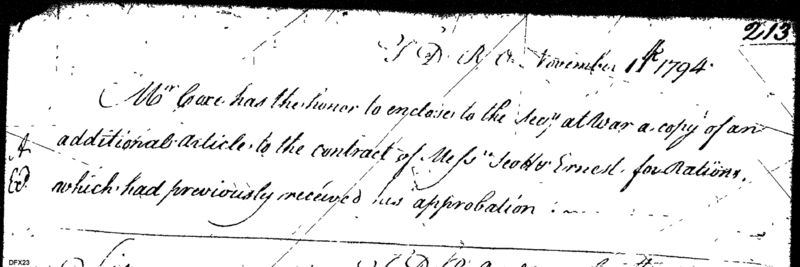 213
T D R O November 11th 1794
Mr Coxe has the honor to enclose to the Secy at War a copy of an
additional Article to the contract of Messrs Scott & Ernest for Rations,
which had previously received his approbation.
DFX23